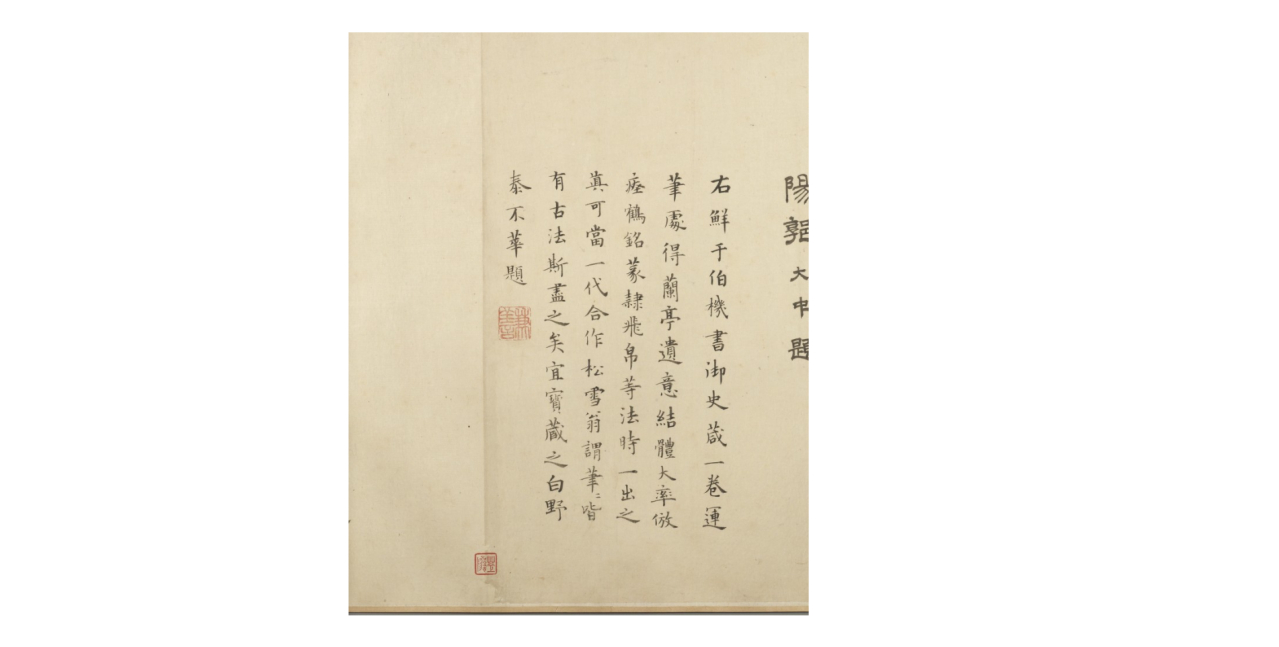 陽郭大中題
右鮮于伯機書御史箴一卷運
筆處得蘭亭遺意結體大率倣
瘞鶴銘篆隸飛帛等法時一出之
真可當一代合作松雪翁謂筆〻皆
有古法斯盡之矣宜寶藏之白野
泰不華題